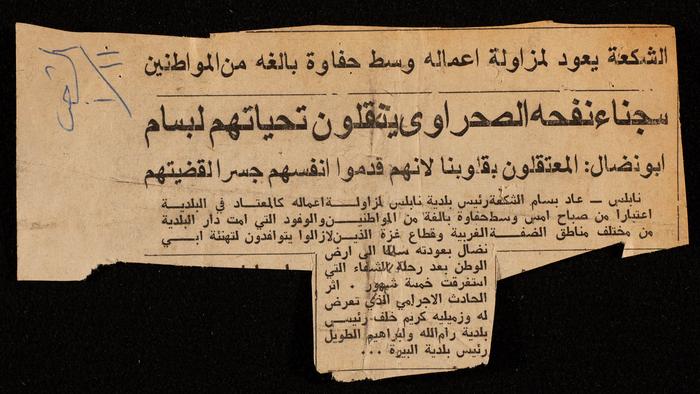 الشعب
١١/١
الشكعة يعود لمزاولة اعماله وسط حفاوة بالغه من المواطنين
سجناء نفحه الصحراوى ينقلون تحياتهم لبسام
ابو نضال: المعتقلون بقلوبنا لانهم قدموا انفسهم جسرا لقضيتهم
نابلس — عاد بسام الشكعة رئيس بلدية نابلس لمزاولة اعماله كالمعتاد في البلدية
اعتبارا من صباح امس وسط حفاوة بالغة من المواطنين والوفود التي امت دار البلدية
من مختلف مناطق الضفة الغربية وقطاع غزة الذين لازالوا يتوافدون لتهنئة ابي
نضال بعودته سالما الى ارض
الوطن بعد رحلة الشفاء التي
استغرقت خمسة شهور . اثر
الحادث الاجرامي الذي تعرض
له وزميليه كريم خلف رئيس
بلدية رام الله وابراهيم الطويل
رئيس بلدية البيرة ...